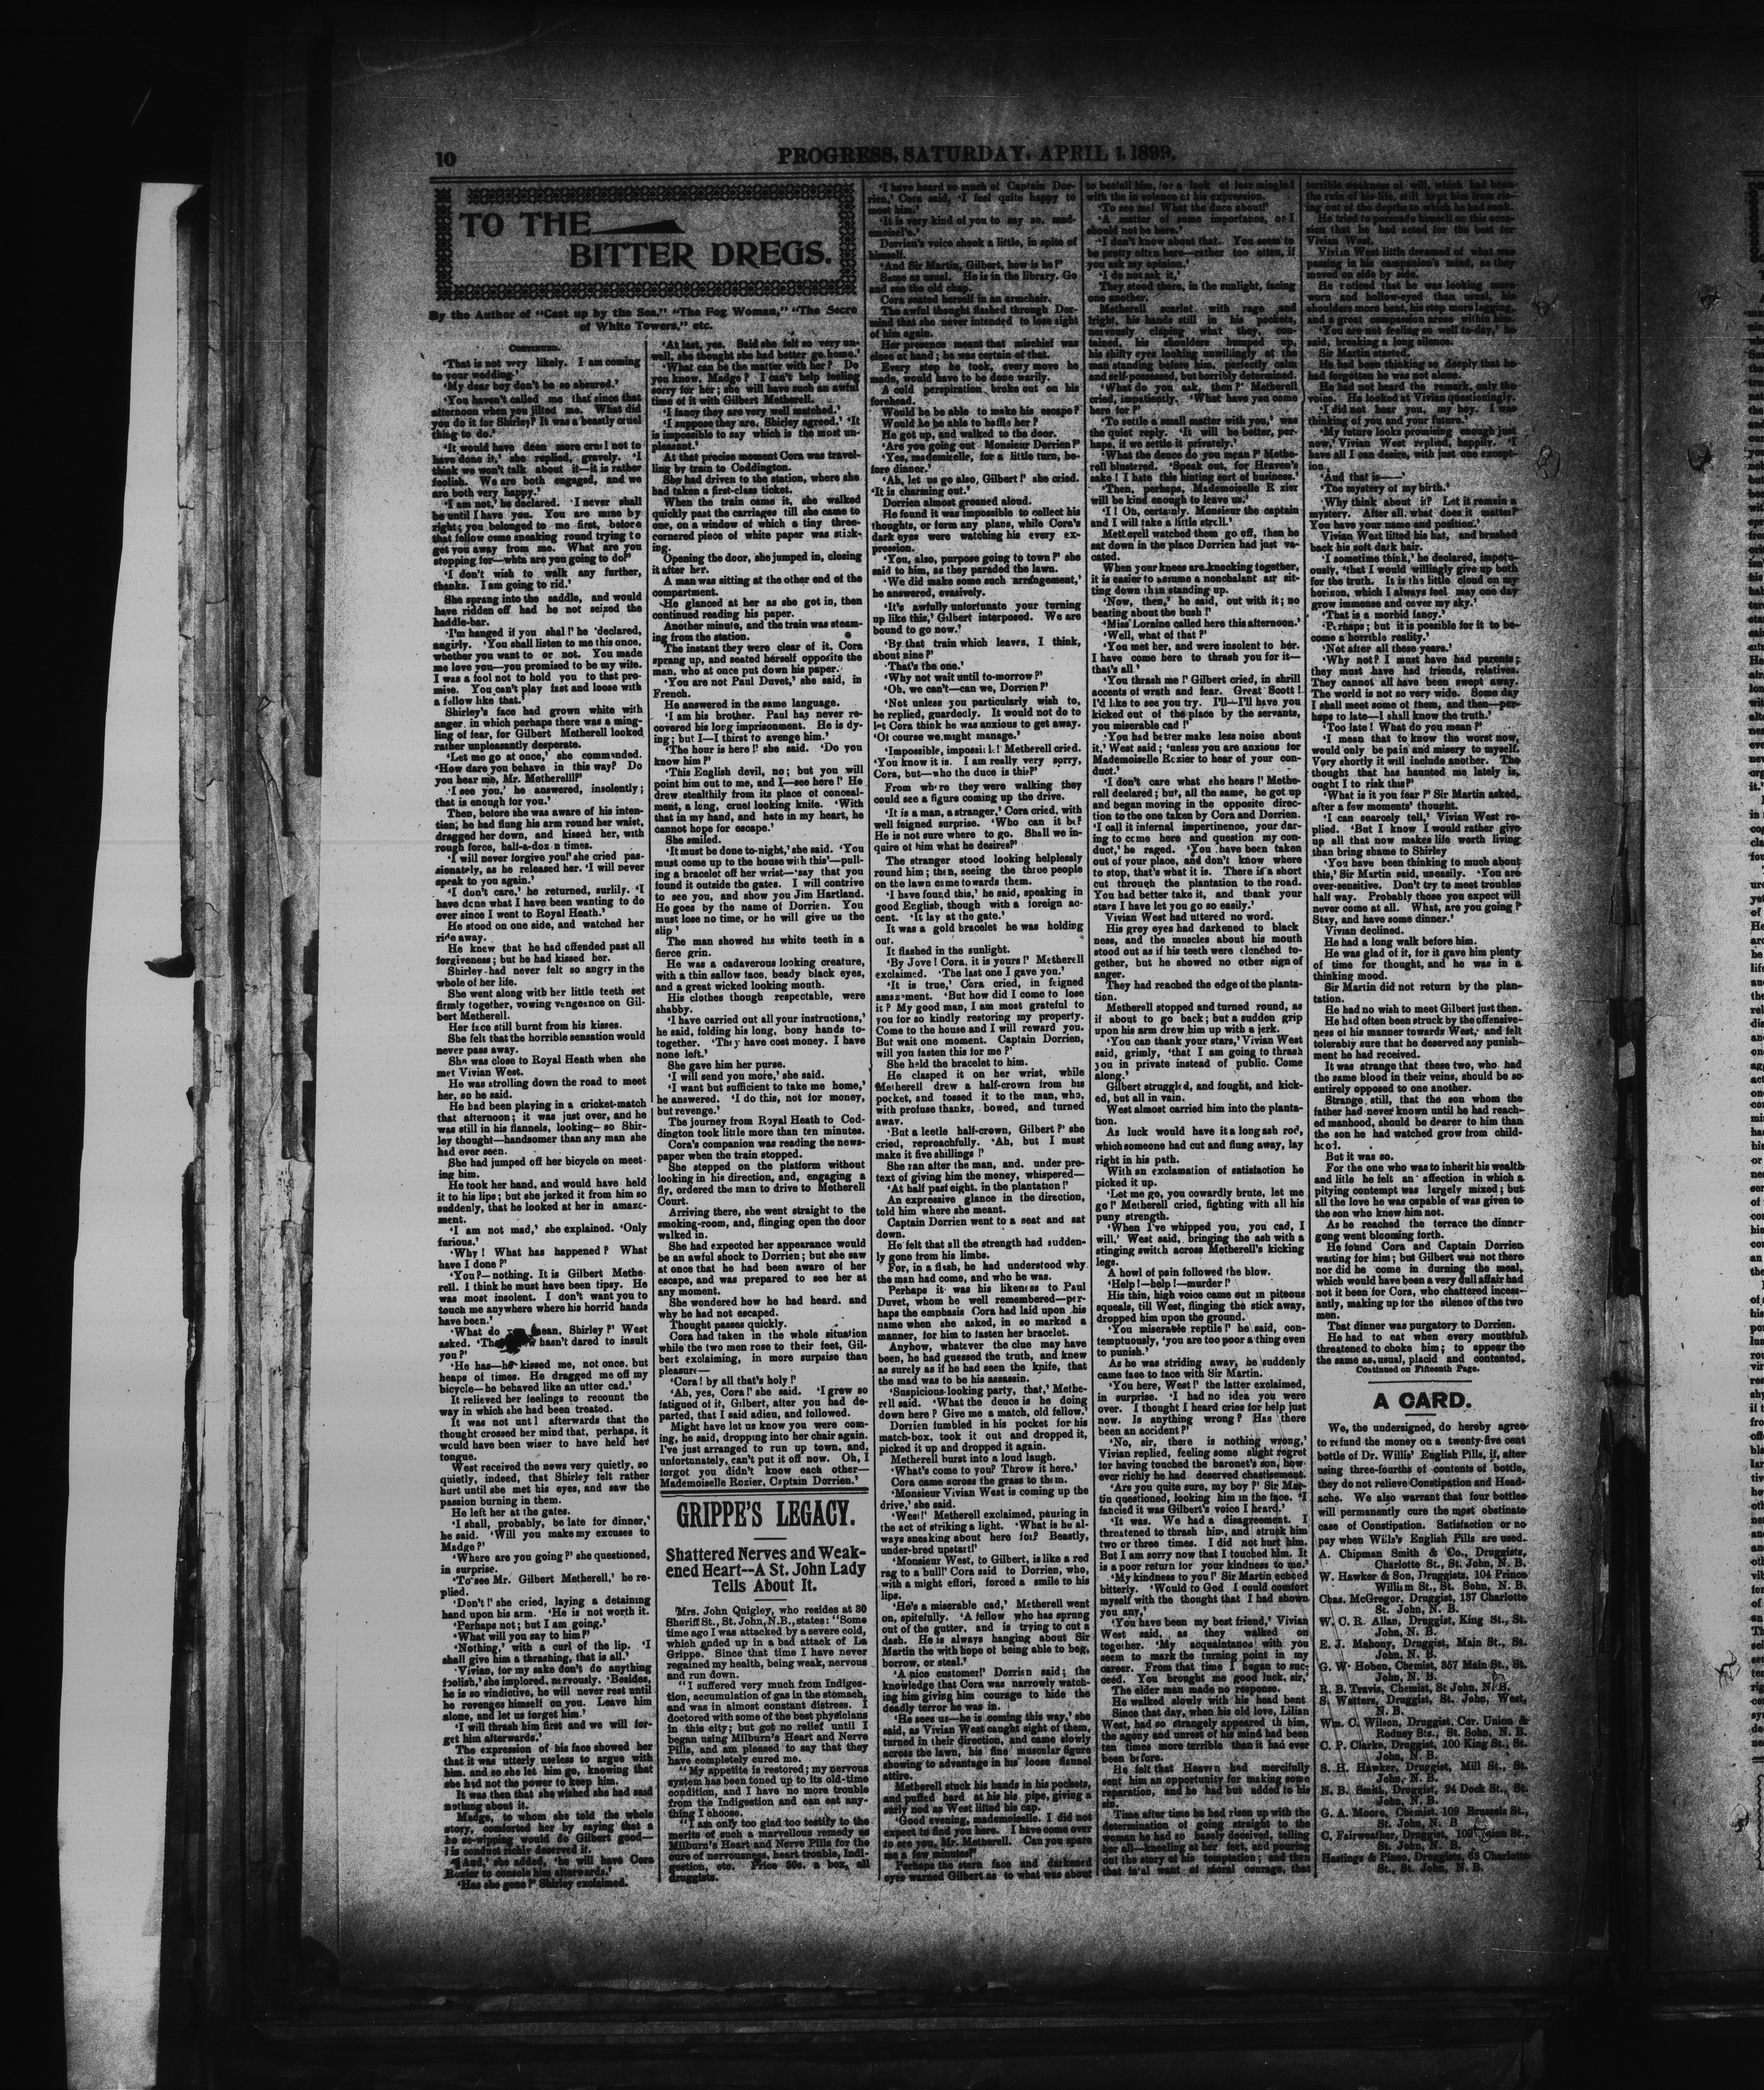 10
PROGRESS, SATURDAY, APRIL 1, 1899.
TO THE
BITTER DREGS.
By the Author of "Cast up by the Sea," "The Fog Woman," "The Secre
of White Towers," etc.
CONTINUED.
'That is not very likely. I am coming
to your wedding.'
'My dear boy don't be so absured.'
'You haven't called me that since that
afternoon when you jilted me. What did
you do it for Shirley? It was a beastly cruel
thing to do.'
'It would have deen more cruel not to
have done it,' she replied, gravely. 'I
think we won't talk about it—it is rather
foolish. We are both engaged, and we
are both very happy.'
'I am not,' he declared. 'I never shall
be until I have you. You are mine by
right; you belonged to me first, before
that fellow came sneaking round trying to
get you away from me. What are you
stopping for—whta are you going to do?'
'I don't wish to walk any further,
thanks. I am going to rid.'
She sprang into the saddle, and would
have ridden off had he not seized the
haddle-bar.
'I'm hanged if you shal!' he 'declared,
angirly. 'You shall listen to me this once,
whether you want to or not. You made
me love you—you promised to be my wife.
I was a fool not to hold you to that pro-
mise. You can't play fast and loose with
a fellow like that.'
Shirley's face had grown white with
anger in which perhaps there was a ming-
ling of fear, for Gilbert Metherell looked
rather unpleasantly desperate.
'Let me go at once,' she commanded.
'How dare you behave in this way? Do
you hear me, Mr. Metherelll?'
'I see you,' he answered, insolently;
that is enough for you.'
Then, before she was aware of his inten-
tion, he had flung his arm round her waist,
dragged her down, and kissed her, with
rough force, half-a-doz n times.
'I will never forgive you!' she cried pas-
sionately, as he released her. 'I will never
speak to you again.'
'I don't care,' he returned, surlily. 'I
have done what I have been wanting to do
ever since I went to Royal Heath.'
He stood on one side, and watched her
ride away.
He knew that he had offended past all
forgiveness; but he had kissed her.
Shirley had never felt so angry in the
whole of her life.
She went along with her little teeth set
firmly together, vowing vengeance on Gil-
bert Metherell.
Her face still burnt from his kisses.
She felt that the horrible sensation would
never pass away.
She was close to Royal Heath when she
met Vivian West.
He was strolling down the road to meet
her, so he said.
He had been playing in a cricket-match
that afternoon; it was just over, and he
was still in his flannels, looking—so Shir-
ley thought—handsomer than any man she
had ever seen.
She had jumped off her bicycle on meet-
ing him.
He took her hand, and would have held
it to his lips; but she jerked it from him so
suddenly, that he looked at her in amaze-
ment.
'I am not mad,' she explained. 'Only
furious.'
'Why! What has happened? What
have I done?'
'You?—nothing. It is Gilbert Methe-
rell. I think he must have been tipsy. He
was most insolent. I don't want you to
touch me anywhere where his horrid hands
have been.'
'What do mean, Shirley?' West
asked. hasn't dared to insult
you?'
'He has—he kissed me, not once, but
heaps of times. He dragged me off my
bicycle—he behaved like an utter cad.'
It relieved her feelings to recount the
way in which she had been treated.
It was not unt l afterwards that the
thought crossed her mind that, perhaps, it
would have been wiser to have held her
tongue.
West received the news very quietly, so
quietly, indeed, that Shirley felt rather
hurt until she met his eyes, and saw the
passion burning in them.
He left her at the gates.
'I shall, probably, be late for dinner,'
he said. 'Will you make my excuses to
Madge?'
'Where are you going?' she questioned,
in surprise.
'To see Mr. Gilbert Metherell,' he re-
plied.
'Don't!' she cried, laying a detaining
hand upon his arm. 'He is not worth it.
'Perhaps not; but I am going.'
'What will you say to him?'
'Nothing,' with a curl of the lip. 'I
shall give him a thrashing, that is all.'
'Vivian, for my sake don't do anything
foolish,' she implored, nervously. 'Besides,
he is so vindictive, he will never rest until
he revenges himself on you. Leave him
alone, and let us forget him.'
'I will thrash him first and we will for-
get him afterwards.'
The expression of his face showed her
that it was utterly useless to argue with
him, and so she let him go, knowing that
she had not the power to keep him.
It was then that she wished she had said
nothing about it.
Madge, to whom she told the whole
story, comforted her by saying that a
would do Gilbert good—
conduct richly deserved it.
'And,' she added, 'he will have Cora
Rozier to console him afterwards.'
'Has she gone?' Shirley exclaimed.
'At last, yes. Said she felt so very un-
well, she thought she had better go home.'
'What can be the matter with her? Do
you know, Madge? I can't help feeling
sorry for her; she will have such an awful
time of it with Gilbert Metherell.
'I fancy they are very well matched.'
'I suppose they are, Shirley agreed.' 'It
is impossible to say which is the most un-
pleasant.'
At that precise moment Cora was travel-
ling by train to Coddington.
She had driven to the station, where she
had taken a first-class ticket.
When the train came it, she walked
quickly past the carriages till she came to
one, on a window of which a tiny three-
cornered piece of white paper was stick-
ing.
Opening the door, she jumped in, closing
it after her.
A man was sitting at the other end of the
compartment.
He glanced at her as she got in, then
continued reading his paper.
Another minute, and the train was steam-
ing from the station.
The instant they were clear of it, Cora
sprang up, and seated herself opposite the
man, who at once put down his paper.
'You are not Paul Duvet,' she said, in
French.
He answered in the same language.
'I am his brother. Paul has never re-
covered his long imprisonment. He is dy-
ing; but I—I thirst to avenge him.'
'The hour is here!' she said. 'Do you
know him?'
'This English devil, no; but you will
point him out to me, and I—see here!' He
drew stealthily from its place of conceal-
ment, a long, cruel looking knife. 'With
that in my hand, and hate in my heart, he
cannot hope for escape.'
She smiled.
'It must be done to-night,' she said. 'You
must come up to the house with this'—pull-
ing a bracelet off her wrist—'say that you
found it outside the gates. I will contrive
to see you, and show you Jim Hartland.
He goes by the name of Dorrien. You
must lose no time, or he will give us the
slip'
The man showed his white teeth in a
fierce grin.
He was a cadaverous looking creature,
with a thin sallow face, beady black eyes,
and a great wicked looking mouth.
His clothes though respectable, were
shabby.
'I have carried out all your instructions,'
he said, folding his long, bony hands to-
together. 'They have cost money. I have
none left.'
She gave him her purse.
'I will send you more,' she said.
'I want but sufficient to take me home,'
he answered. 'I do this, not for money,
but revenge.'
The journey from Royal Heath to Cod-
dington took little more than ten minutes.
Cora's companion was reading the news-
paper when the train stopped.
She stepped on the platform without
looking in his direction, and, engaging a
fly, ordered the man to drive to Metherell
Court.
Arriving there, she went straight to the
smoking-room, and, flinging open the door
walked in.
She had expected her appearance would
be an awful shock to Dorrien; but she saw
at once that he had been aware of her
escape, and was prepared to see her at
any moment.
She wondered how he had heard, and
why he had not escaped.
Thought passes quickly.
Cora had taken in the whole situation
while the two men rose to their feet, Gil-
bert exclaiming, in more surprise than
pleasure—
'Cora! by all that's holy!'
'Ah, yes, Cora!' she said. 'I grew so
fatigued of it, Gilbert, after you had de-
parted, that I said adieu, and followed.
Might have let us know you were com-
ing, he said, dropping into her chair again.
I've just arranged to run up town, and,
unfortunately, can't put it off now. Oh, I
forgot you didn't know each other—
Mademoiselle Rozier, Captain Dorrien.'
GRIPPE'S LEGACY.
Shattered Nerves and Weak-
ened Heart--A St. John Lady
Tells About It.
Mrs. John Quigley, who resides at 30
Sheriff St., St. John, N.B., states: "Some
time ago I was attacked by a severe cold,
which ended up in a bad attack of La
Grippe. Since that time I have never
regained my health, being weak, nervous
and run down.
"I suffered very much from Indiges-
tion, accumulation of gas in the stomach,
and was in almost constant distress. I
doctored with some of the best physicians
in this city; but got no relief until I
began using Milburn's Heart and Nerve
Pills, and am pleased to say that they
have completely cured me.
"My appetite is restored; my nervous
system has been toned up to its old-time
condition, and I have no more trouble
from the Indigestion and can eat any-
thing I choose.
"I am only too glad too testify to the
merits of such a marvellous remedy as
Milburn's Heart and Nerve Pills for the
cure of nervousness, heart trouble, Indi-
gestion, etc. Price 50c. a box, all
druggists.
'I have heard so much of Captain Dor-
rien,' Cora said, 'I feel quite happy to
meet him.'
'It is very kind of you to say so, mad-
emoisel'e.'
Dorrien's voice shook a little, in spite of
himself.
'And Sir Martin, Gilbert, how is he?'
Same as usual. He is in the library. Go
and see the old chap.
Cora seated herself in an armchair.
The awful thought flashed through Dor-
mind that she never intended to lose sight
of him again.
Her presence meant that mischief was
close at hand; he was certain of that.
Every step he took, every move he
made, would have to be done warily.
A cold perspiration broke out on his
forehead.
Would he be able to make his escape?
Would he be able to baffle her?
He got up, and walked to the door.
'Are you going out Monsieur Dorrien?'
'Yes, mademoielle, for a little turn, be-
fore dinner.'
'Ah, let us go also, Gilbert!' she cried.
'It is charming out.'
Dorrien almost groaned aloud.
He found it was impossible to collect his
thoughts, or form any plans, while Cora's
dark eyes were watching his every ex-
pression.
'You, also, purpose going to town?' she
said to him, as they paraded the lawn.
'We did make some such arrangement,'
he answered, evasively.
'It's awfully unfortunate your turning
up like this,' Gilbert interposed. We are
bound to go now.'
'By that train which leaves, I think,
about nine?'
'That's the one.'
'Why not wait until to-morrow?'
'Oh, we can't—can we, Dorrien?'
'Not unless you particularly wish to,
he replied, guardedly. It would not do to
let Cora think he was anxious to get away.
'Of course we might manage.'
'Impossible, impossible!' Metherell cried.
'You know it is. I am really very sorry,
Cora, but—who the duce is this?'
From where they were walking they
could see a figure coming up the drive.
'It is a man, a stranger,' Cora cried, with
well feigned surprise. 'Who can it be?
He is not sure where to go. Shall we in-
quire of him what he desires?'
The stranger stood looking helplessly
round him; then, seeing the three people
on the lawn came to wards them.
'I have found this,' he said, speaking in
good English, though with a foreign ac-
cent. 'It lay at the gate.'
It was a gold bracelet he was holding
out.
It flashed in the sunlight.
'By Jove! Cora, it is yours!' Metherell
exclaimed. 'The last one I gave you.'
'It is true,' Cora cried, in feigned
amazement. 'But how did I come to lose
it? My good man, I am most grateful to
you for so kindly restoring my property.
Come to the house and I will reward you.
But wait one moment. Captain Dorrien,
will you fasten this for me?'
She held the bracelet to him.
He clasped it on her wrist, while
Metherell drew a half-crown from his
pocket, and tossed it to the man, who,
with profuse thanks, bowed, and turned
away.
'But a leetle half-crown, Gilbert!' she
cried, reproachfully. 'Ah, but I must
make it five shillings!'
She ran after the man, and, under pre-
text of giving him the money, whispered—
'At half past eight, in the plantation!'
An expressive glance in the direction,
told him where she meant.
Captain Dorrien went to a seat and sat
down.
He felt that all the strength had sudden-
ly gone from his limbs.
For, in a flash, he had understood why
the man had come, and who he was.
Perhaps it was his likeness to Paul
Duvet, whom he well remembered—per-
haps the emphasis Cora had laid upon his
name when she asked, in so marked a
manner, for him to fasten her bracelet.
Anyhow, whatever the clue may have
been, he had guessed the truth, and knew
as surely as if he had seen the knife, that
the mad was to be his assassin.
'Suspicious-looking party, that,' Methe-
rell said. 'What the deuce is he doing
down here? Give me a match, old fellow.'
Dorrien fumbled in his pocket for his
match-box, took it out and dropped it,
picked it up and dropped it again.
Metherell burst into a loud laugh.
'What's come to you? Throw it here.'
Cora came across the grass to them.
'Monsieur Vivian West is coming up the
drive,' she said.
'West!' Metherell exclaimed, pausing in
the act of striking a light. 'What is he al-
ways sneaking about here for? Beastly,
under-bred upstart!'
'Monsieur West, to Gilbert, is like a red
rag to a bull!' Cora said to Dorrien, who,
with a might effori, forced a smile to his
lips.
'He's a miserable cad,' Metherell went
on, spitefully. 'A fellow who has sprung
out of the gutter, and is trying to cut a
dash. He is always hanging about Sir
Martin the with hope of being able to beg,
borrow, or steal.'
'A nice customer!' Dorrien said; the
knowledge that Cora was narrowly watch-
ing him giving him courage to hide the
deadly terror he was in.
'He sees us—he is coming this way,' she
said, as Vivian West caught sight of them,
turned in their direction, and came slowly
across the lawn, his fine muscular figure
showing to advantage in his loose flannel
attire.
Metherell stuck his hands in his pockets,
and puffed hard at his his pipe, giving a
surly nod as West lifted his cap.
'Good evening, mademoiselle. I did not
expect to find you here. I have come over
to see you, Mr. Metherell. Can you spare
me a few minutes?'
Perhaps the stern face and darkened
eyes warned Gilbert as to what was about
to beefall him, for a look of fear mingled
with the in solence of his expression.
'To see me! What the duce about?'
'A matter of some importance, or I
should not be here.'
'I don't know about that. You seem to
be pretty often here—rather too often, if
you ask my opinion.'
'I do not ask it,'
They stood there, in the sunlight, facing
one another.
Metherell scarlet with rage and
fright, his hands still in his pockets,
nervously claping what they, con-
tained, his shoulders humped up,
his shifty eyes looking unwillingly at the
man standing before him, perfectly calm
and self-possessed, but horribly determined.
'What do you ask, then?' Metherell
cried, impatiently. 'What have you come
here for?'
'To settle a small matter with you,' was
the quiet reply. 'It will be better, per-
haps, if we settle it privately.'
'What the deuce do you mean?' Methe-
rell blustered. 'Speak out, for Heaven's
sake! I hate this hinting sort of business.'
'Then, perhaps, Mademoiselle R zier
will be kind enough to leave us.'
'I! Oh, certainly. Monsieur the captain
and I will take a little stroll.'
Metherell watched them go off, then he
sat down in the place Dorrien had just va-
cated.
When your knees are knocking together,
it is easier to assume a nonchalant air sit-
ting down than standing up.
'Now, then,' he said, out with it; no
beating about the bush!'
'Miss Loraine called here this afternoon.'
'Well, what of that?'
'You met her, and were insolent to her.
I have come here to thrash you for it—
that's all'
'You thrash me!' Gilbert cried, in shrill
accents of wrath and fear. Great Scott!
I'd like to see you try. I'll—I'll have you
kicked out of the place by the servants,
you miserable cad!'
'You had better make less noise about
it,' West said; 'unless you are anxious for
Mademoiselle Rozier to hear of your con-
duct.'
'I don't care what she hears!' Methe-
rell declared; but, all the same, he got up
and began moving in the opposite direc-
tion to the one taken by Cora and Dorrien.
'I call it infernal impertinence, your dar-
ing to come here and question my con-
duct,' he raged. 'You have been taken
out of your place, and don't know where
to stop, that's what it is. There is a short
cut through the plantation to the road.
You had better take it, and thank your
stars I have let you go so easily.'
Vivian West had uttered no word.
His grey eyes had darkened to black
ness, and the muscles about his mouth
stood out as if his teeth were clenched to-
gether, but he showed no other sign of
anger.
They had reached the edge of the planta-
tion.
Metherell stopped and turned round, as
if about to go back; but a sudden grip
upon his arm drew him up with a jerk.
'You can thank your stars,' Vivian West
said, grimly, 'that I am going to thrash
you in private instead of public. Come
along.'
Gilbert struggled, and fought, and kick-
ed, but all in vain.
West almost carried him into the planta-
tion.
As luck would have it a long ash rod,
which someone had cut and flung away, lay
right in his path.
With an exclamation of satisfaction he
picked it up.
'Let me go, you cowardly brute, let me
go!' Metherell cried, fighting with all his
puny strength.
'When I've whipped you, you cad, I
will,' West said, bringing the ash with a
stinging switch across Metherell's kicking
legs.
A howl of pain followed the blow.
'Help!—help!—murder!'
His thin, high voice came out in piteous
squeals, till West, flinging the stick away,
dropped him upon the ground.
'You miserable reptile!' he said, con-
temptuously, 'you are too poor a thing even
to punish.'
As he was striding away, he suddenly
came face to face with Sir Martin.
'You here, West!' the latter exclaimed,
in surprise. 'I had no idea you were
over. I thought I heard cries for help just
now. Is anything wrong? Has there
been an accident?'
'No, sir, there is nothing wrong,'
Vivian replied, feeling some slight regret
for having touched the baronet's son, how
ever richly he had deserved chastisement.
'Are you quite sure, my boy?' Sir Mar-
tin questioned, looking him in the face. 'I
fancied it was Gilbert's voice I heard.'
'It was. We had a disagreement. I
threatened to thrash him, and struck him
two or three times. I did not hurt him.
But I am sorry now that I touched him. It
is a poor return for your kindness to me.'
'My kindness to you!' Sir Martin echoed
bitterly. 'Would to God I could comfort
myself with the thought that I had shown
you any,'
'You have been my best friend,' Vivian
West said, as they walked on
together. 'My acquaintance with you
seem to mark the turning point in my
career. From that time I began to suc-
ceed. You brought me good luck, sir.'
The elder man made no response.
He walked slowly with his head bent
Since that day, when his old love, Lilian
West, had so strangely appeared th him,
the agony and unrest of his mind had been
ten times more terrible than it had ever
been before.
He felt that Heaven had mercifully
sent him an opportunity for making some
reparation, and he had but added to his
sin.
Time after time he had risen up with the
determination of going straight to the
woman he had so basely deceived, telling
her all—kneeling at her feet, and pouring
out the story of his temptation; and then
that fatal want of moral courage, that
terrible weakness of will, which had been
the ruin of his life, still kept him from ris-
ing out of the depths to which he had sunk.
He tried to persuade himself on this occa-
sion that he had acted for the best for
Vivian West.
Vivian West little dreamed of what was
passing in his companion's mind, as they
moved on side by side.
He noticed that he was looking more
worn and hollow-eyed than usual, his
shoulders more bent, his step more lagging,
and a great compassion arose within him.
'You are not feeling so well to-day,' he
said, breaking a long silence.
Sir Martin started.
He had been thinking so deeply that he
had forgotten he was not alone.
He had not heard the remark, only the
voice. He looked at Vivian questioningly.
'I did not hear you, my boy. I was
thinking of you and your future.'
'My future looks promising enough just
now,' Vivian West replied, happily. 'I
have all I can desire, with just one except-
ion.
'And that is——'
'The mystery of my birth.'
'Why think about it? Let it remain a
mystery. After all, what does it matter?
You have your name and position.'
Vivian West lifted his hat, and brushed
back his soft dark hair.
'I sometime think,' he declared, impetu-
ously, 'that I would willingly give up both
for the truth. It is the little cloud on my
horizon, which I always feel may one day
grow immense and cover my sky.'
'That is a morbid fancy.'
'Perhaps; but it is possible for it to be-
come a horrible reality.'
'Not after all these years.'
'Why not? I must have had parents;
they must have had friends, relatives.
They cannot all have been swept away.
The world is not so very wide. Some day
I shall meet some of them, and then—per-
haps to late—I shall know the truth.'
'Too late! What do you mean?'
'I mean that to know the worst now,
would only be pain and misery to myself.
Very shortly it will include another. The
thought that has haunted me lately is,
ought I to risk this?'
'What is it you fear?' Sir Martin asked,
after a few moments' thought.
'I can scarcely tell,' Vivian West re-
plied. 'But I know I would rather give
up all that now makes life worth living
than bring shame to Shirley
'You have been thinking to much about
this,' Sir Martin said, uneasily. 'You are
over-sensitive. Don't try to meet troubles
half way. Probably those you expect will
never come at all. What, are you going?
Stay, and have some dinner.'
Vivian declined.
He had a long walk before him.
He was glad of it, for it gave him plenty
of time for thought, and he was in a
thinking mood.
Sir Martin did not return by the plan-
tation.
He had no wish to meet Gilbert just then.
He had often been struck by the offensive-
ness of his manner towards West, and felt
tolerably sure that he deserved any punish-
ment he had received.
It was strange that these two, who had
the same blood in their veins, should be so
entirely opposed to one another.
Strange, still, that the son whom the
father had never known until he had reach-
ed manhood, should be dearer to him than
the son he had watched grow from child-
hood.
But it was so.
For the one who was to inherit his wealth
and litle he felt an affection in which a
pitying contempt was largely mixed; but
all the love he was capable of was given to
the son who knew him not.
As he reached the terrace the dinner
gong went blooming forth.
He found Cora and Captain Dorrien
waiting for him; but Gilbert was not there
nor did he come in durning the meal,
which would have been a very dull affair had
not it been for Cora, who chattered incess-
antly, making up for the silence of the two
men.
That dinner was purgatory to Dorrien.
He had to eat when every mouthful
threatened to choke him; to appear the
the same as usual, placid and contented,
Continued on Fifteenth Page.
A CARD.
We, the undersigned, do hereby agree
to refund the money on a twenty-five cent
bottle of Dr. Willis' English Pills, if, after
using three-fourths of contents of bottle,
they do not relieve Constipation and Head-
ache. We also warrant that four bottles
will permanently cure the most obstinate
case of Constipation. Satisfaction or no
pay when Willis's English Pills are used.
A. Chipman Smith & Co., Druggists,
Charlotte St., St. John, N. B.
W. Hawker & Son, Druggists, 104 Prince
William St., St. John, N. B.
Chas. McGregor, Druggist, 137 Charlotte
St. John, N. B.
W. C. R. Allan, Druggist, King St., St.
John, N. B.
E. J. Mahony, Druggist, Main St., St.
John, N. B.
G. W. Hoben, Chemist, 357 Main St., St.
John, N. B.
R. B. Travis, Chemist, St John, N. B.
S. Watters, Druggist, St. John, West,
N. B.
Wm. C. Wilson, Druggist, Cor. Union &
Rodney Sts., St. John, N. B.
C. P. Clarke, Druggist, 100 King St., St.
John, N. B.
S. H. Hawker, Druggist, Mill St., St.
John, N. B.
N. B. Smith, Druggist, 24 Dock St., St.
John, N. B.
G. A. Moore, Chemist, 109 Brussels St.,
St. John, N. B
C. Fairweather, Druggist, 109 Union St.,
St. John, N. B.
Hastings & Pineo, Druggists, 63 Charlotte
St., St. John, N. B.